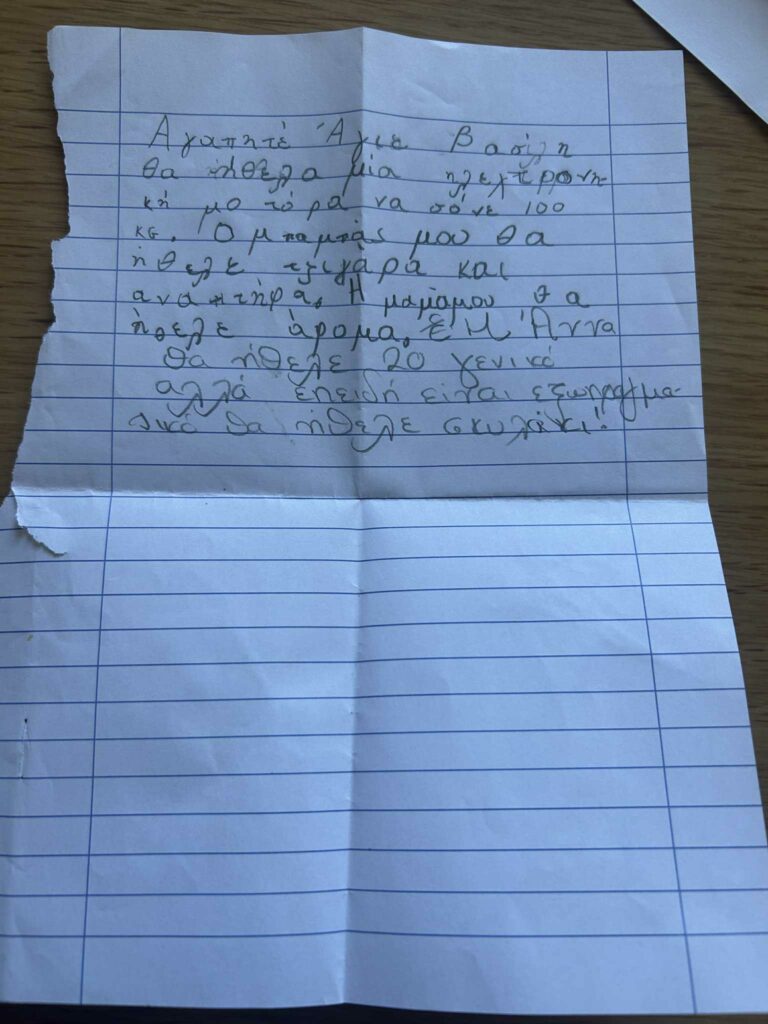 Αγαπητέ Άγιε Βασίλη
θα ήθελα μία ηλεχτρονη
κή μο τόρα να σόνε 100
KG. Ο μπαμπάς μου θα
ήθελε τζιγάρα και
αναπτήρα. Η μαμάμου θα
ήθελε άρομα. Ε Η Άννα
θα ήθελε 20 γενικό
αλλά επειδή είναι εξωπραγμα-
τικό θα ήθελε σκυλάκι!